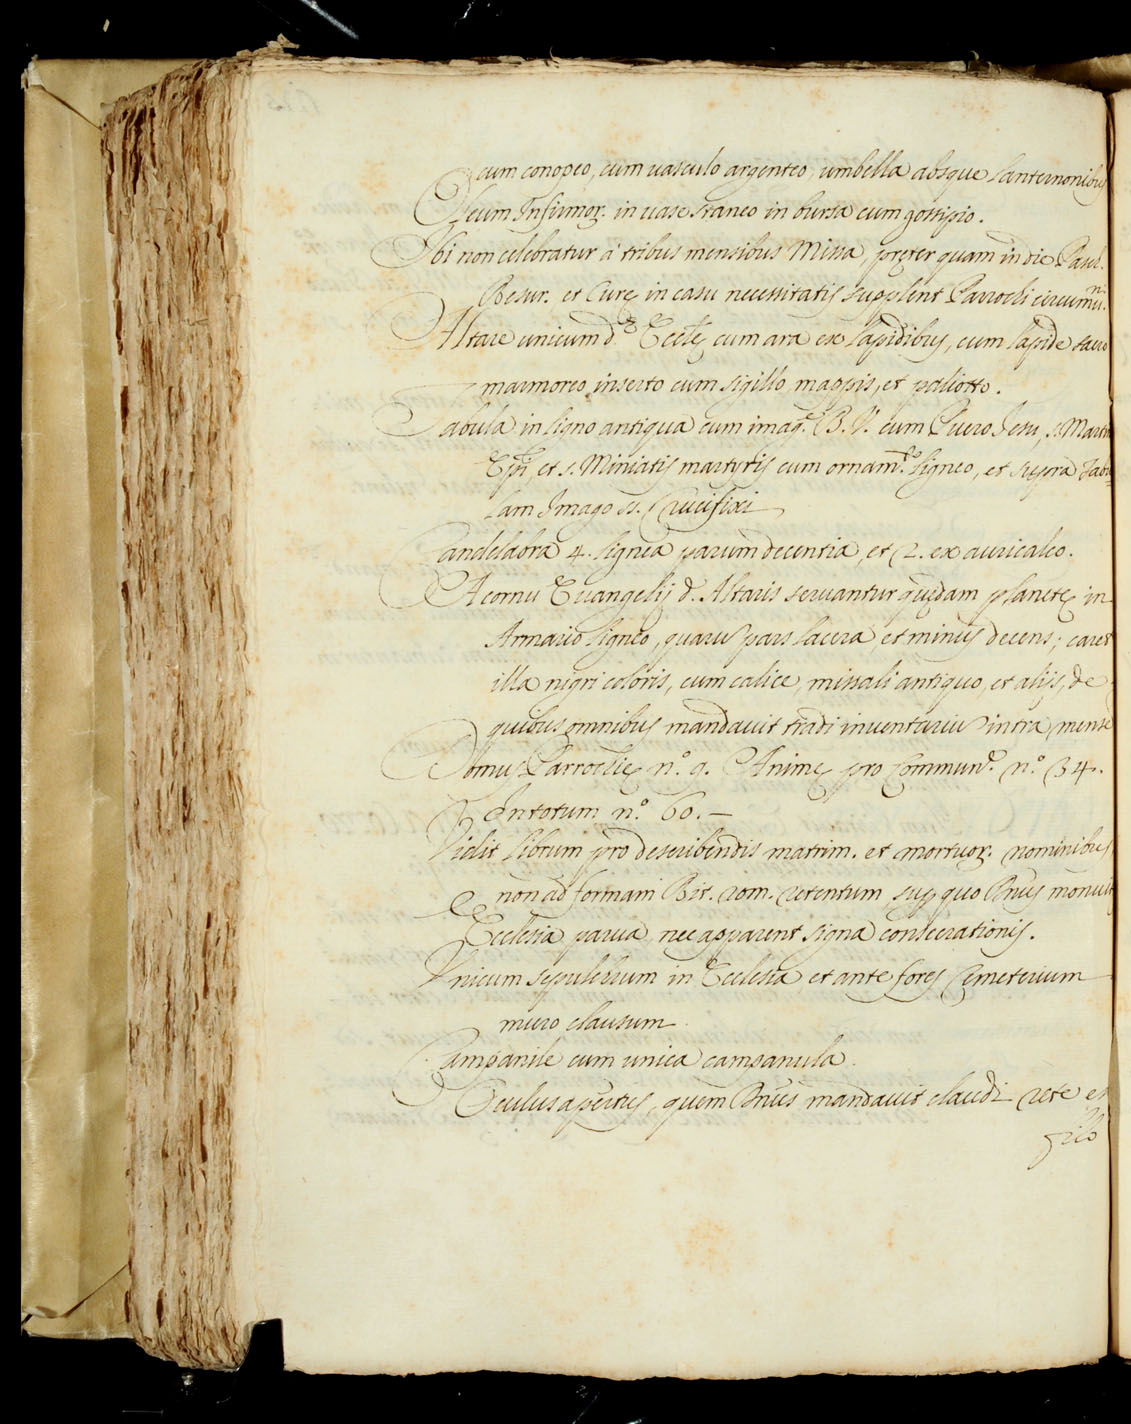 cum conopeo, cum uasculo argenteo, umbella absque lanternonibus
Oleum Infirmor. in uase staneo in bursa cum gossipio.
Ibi non celebratur à tribus mensibus Missa, preter quam in die Pasch.
Resur. et Curę in casu necessitatis supplent Parrochi circumui.ni
Altare unicum d.ę Eccl.ę cum ara ex lapidibus, cum lapide sacro
marmoreo inserto cum sigillo magpis, et paliotto.
Tabula in ligno antiqua cum imag.e B. V. cum Puero Jesu, s. Martin
Ep̃i, et s. Miniatis martyris cum ornam.to ligneo, et supra Tabu=
lam Imago ss. Crucifixi
Candelabra 4. lignea parum decentia, et 2. ex auricalco.
A cornu Euangelij d. Altaris seruantur quędam planetę in
Armario ligneo, quarũ pars lacera, et minus decens; caret
illa nigri coloris, cum calice, missali antiquo, et alijs, de
quibus omnibus mandauit tradi inuentariũ intra mensẽ
Domus Parrochię n.o 9. Animę pro Commun.e n.o 34.
In totum n.o 60. —
Vidit librum pro describendis matrim. et mortuor. nominibus,
non ad formam Rit. rom. retentum, sup quo R̃mus monuit
Ecclesia parua, nec apparent signa consecrationis.
Vnicum sepulchrum in Ecclesia et ante fores Cemeterium
muro clausum
Campanile cum unica campanula.
Oculus apertus, quem R̃mus mandauit claudi rete ex
filo